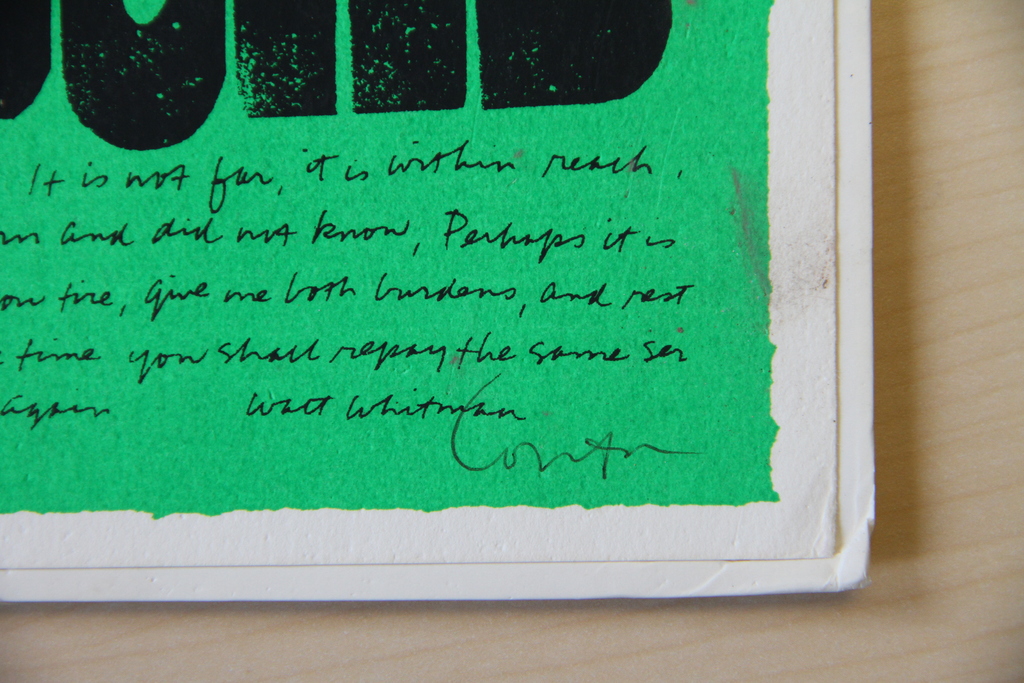 It is not far, it is within reach.
rn and did not know, Perhaps it is
ou tire, give me both burdens, and rest
time you shall repay the same ser
again Walt Whitman
Corita